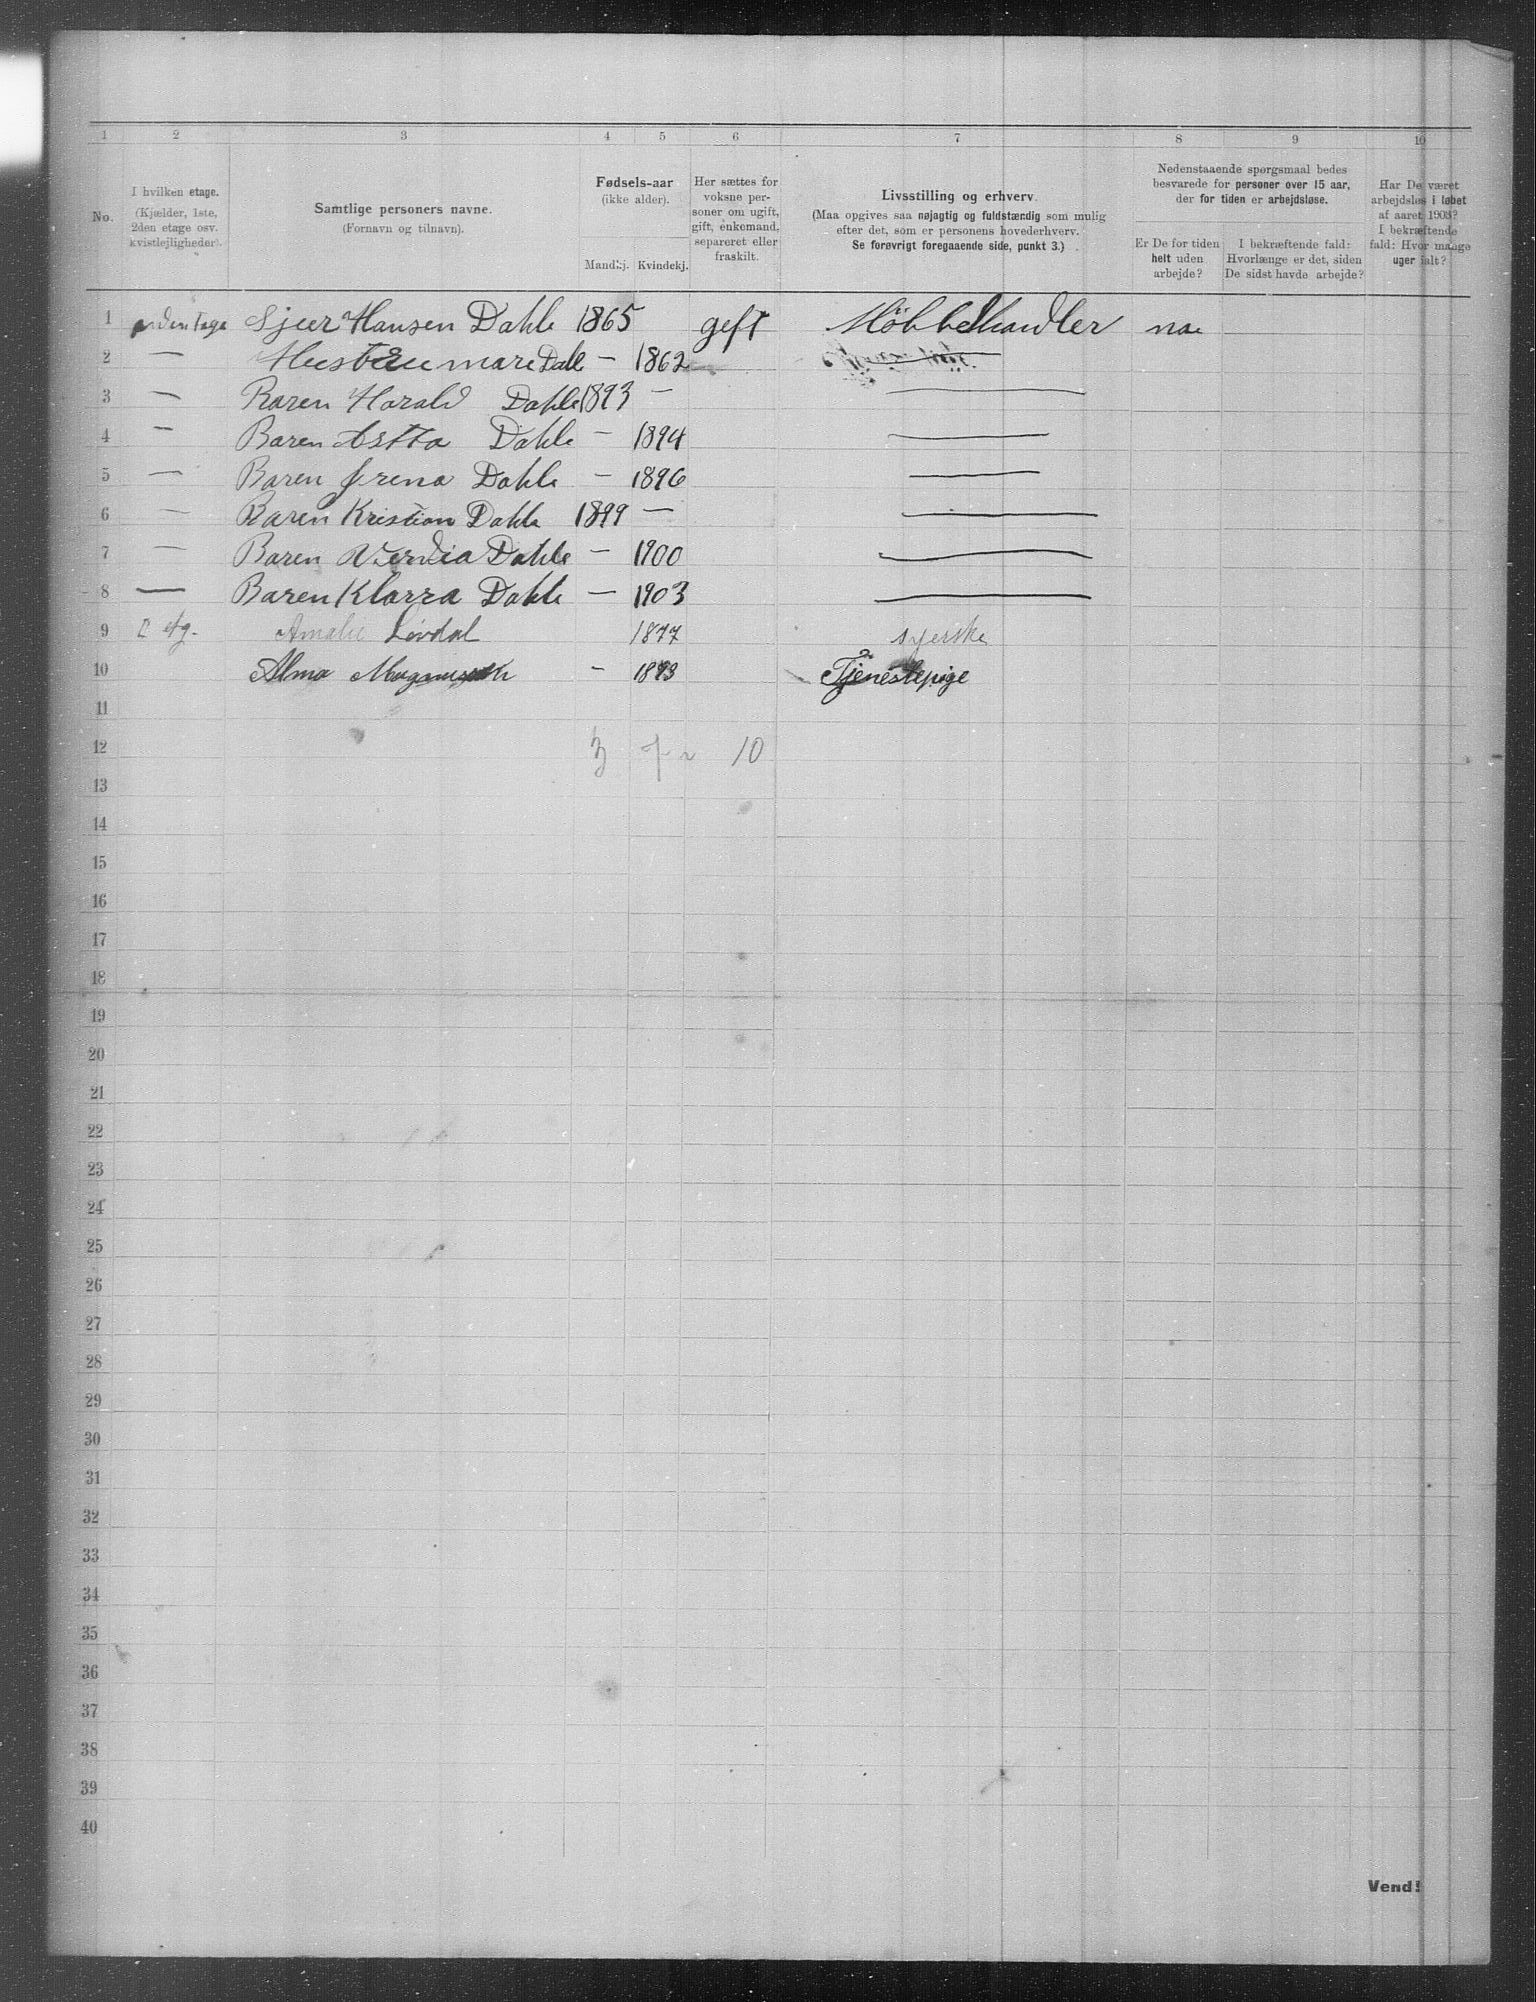 1 2 3 4 5 6 7 8 9 10
No.
I hvilken etage.
(Kjælder, 1ste,
2den etage osv.
kvistlejligheder).
Samtlige personers navne.
(Fornavn og tilnavn).
Fødsels-aar
(ikke alder).
Mandkj. Kvindekj.
Her sættes for
voksne per-
soner om ugift,
gift, enkemand,
separeret eller
fraskilt.
Livsstilling og erhverv.
(Maa opgives saa nøjagtig og fuldstændig som mulig
efter det, som er personens hovederhverv.
Se forøvrigt foregaaende side, punkt 3.)
Nedenstaaende spørgsmaal bedes
besvarede for personer over 15 aar,
der for tiden er arbejdsløse.
Er De for tiden
helt uden
arbejde?
I bekræftende fald:
Hvorlænge er det, siden
De sidst havde arbejde?
Har De været
arbejdsløs i løbet
af aaret 1903?
I bekræftende
fald: Hvor mange
uger ialt?
1 Sjur Hansen Dahle 1865 geft Möbbelhandler na
2 — Hustru mare Dale — 1862
3 — Baren Harald Dahle 1893 — —
4 — Baren Astta Dahle — 1894 —
5 — Baren Jrena Dahle — 1896 —
6 — Baren Kristian Dahle 1899 — —
7 — Baren Dahle — 1900 —
8 — Baren Klarra Dahle — 1903 —
9 2 etg. Amalie Lövdal 1877 syerske
10 Alma — 1883 Tjenestepige
11
12 3 7 10
13
14
15
16
17
18
19
20
21
22
23
24
25
26
27
28
29
30
31
32
33
34
35
36
37
38
39
40
Vend!